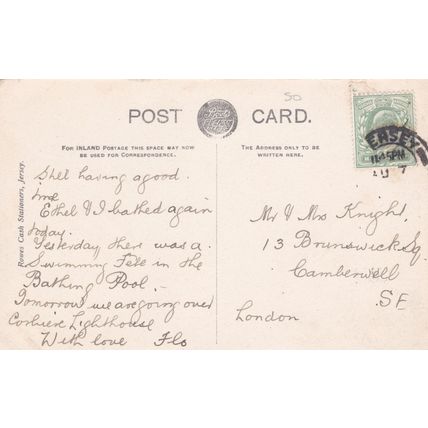 50
POST CARD.
FOR INLAND POSTAGE THIS SPACE MAY NOW
BE USED FOR CORRESPONDENCE.
THE ADDRESS ONLY TO BE
WRITTEN HERE.
Rowes Cash Stationers, Jersey.
Still having a good
time
Ethel & I bathed again
today.
Yesterday there was a
Swimming Fete in the
Bathing Pool.
Tomorrow we are going over
Corbiere Lighthouse
With love Flo
Mr & Mrs Knight,
13 Brunswick Sq.
Camberwell
S.E
London
ERSEY
11.45PM
7